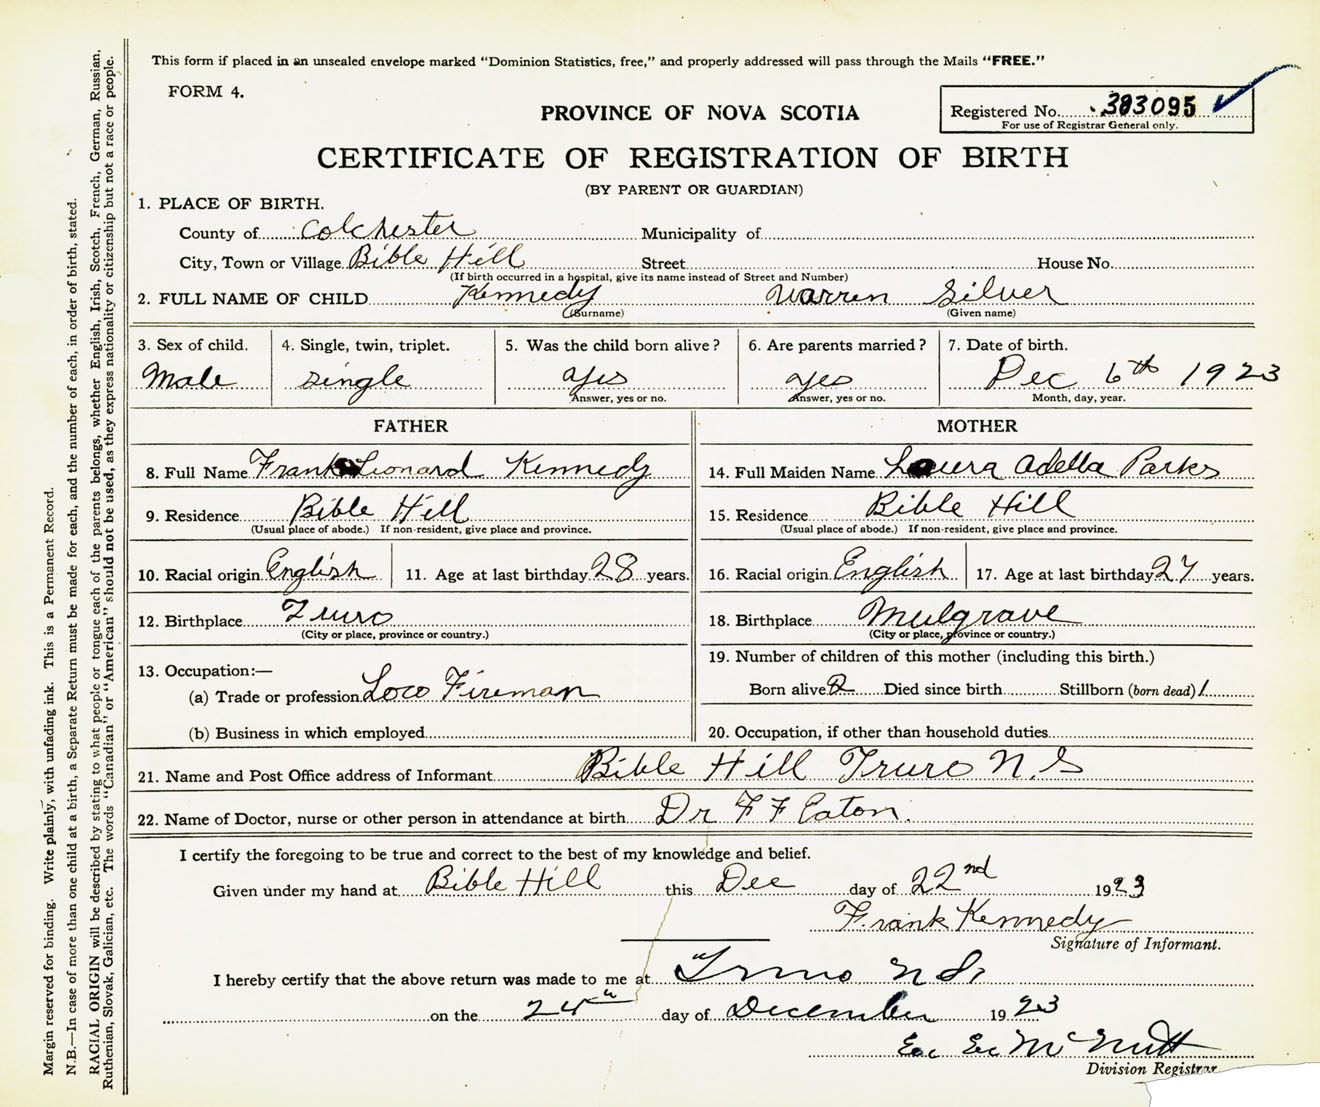 This form if placed in an unsealed envelope marked "Dominion Statistics, free," and properly addressed will pass through the Mails "FREE."
FORM 4.
PROVINCE OF NOVA SCOTIA
Registered No. 383095
For use of Registrar General only.
CERTIFICATE OF REGISTRATION OF BIRTH
(BY PARENT OR GUARDIAN)
1. PLACE OF BIRTH.
County of Colchester Municipality of
City, Town or Village Bible Hill Street House No.
(If birth occurred in a hospital, give its name instead of Street and Number)
2. FULL NAME OF CHILD Kennedy Warren Silver
(Surname) (Given name)
3. Sex of child. 4. Single, twin, triplet. 5. Was the child born alive? 6. Are parents married? 7. Date of birth.
Male single yes yes Dec 6th 1923
Answer, yes or no. Answer, yes or no. Month, day, year.
FATHER MOTHER
8. Full Name Frank Lionard Kennedy 14. Full Maiden Name Laura Adella Parks
9. Residence Bible Hill 15. Residence Bible Hill
(Usual place of abode.) If non-resident, give place and province. (Usual place of abode.) If non-resident, give place and province.
10. Racial origin English 11. Age at last birthday 28 years. 16. Racial origin English 17. Age at last birthday 27 years.
12. Birthplace Truro 18. Birthplace Mulgrave
(City or place, province or country.) (City or place, province or country.)
13. Occupation:— 19. Number of children of this mother (including this birth.)
(a) Trade or profession Loco Fireman Born alive 2 Died since birth Stillborn (born dead) 1
(b) Business in which employed 20. Occupation, if other than household duties
21. Name and Post Office address of Informant Bible Hill Truro N.S
22. Name of Doctor, nurse or other person in attendance at birth Dr F F Eaton.
I certify the foregoing to be true and correct to the best of my knowledge and belief.
Given under my hand at Bible Hill this Dec day of 22nd 1923
Frank Kennedy
Signature of Informant.
I hereby certify that the above return was made to me at Truro N S
on the 24th day of December 1923
McNutt
Division Registrar
Margin reserved for binding. Write plainly, with unfading ink. This is a Permanent Record.
N.B.—In case of more than one child at a birth, a Separate Return must be made for each, and the number of each, in order of birth, stated.
RACIAL ORIGIN will be described by stating to what people or tongue each of the parents belongs, whether English, Irish, Scotch, French, German, Russian,
Ruthenian, Slovak, Galician, etc. The words "Canadian" or "American" should not be used, as they express nationality or citizenship but not a race or people.